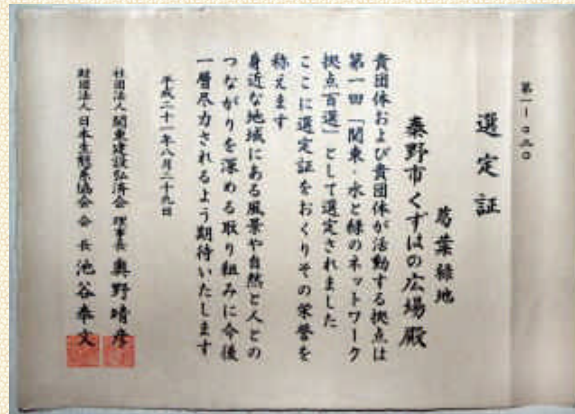 第一-〇二〇
選定証
葛葉緑地
秦野市くずはの広場殿
貴団体および貴団体が活動する拠点は
第一回「関東・水と緑のネットワーク
拠点百選」として選定されました
ここに選定証をおくりその栄誉を
称えます
身近な地域にある風景や自然と人との
つながりを深める取り組みに今後
一層尽力されるよう期待いたします
平成二十一年八月二十九日
社団法人 関東建設弘済会 理事長 奥野晴彦
財団法人 日本生態系協会 会長 池谷奉文